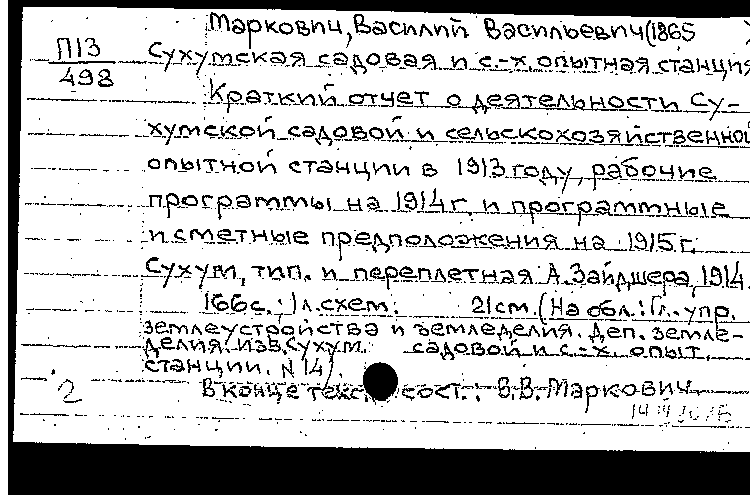 Маркович, Василий Васильевич (1865
П13
498
Сухумская садовая и с.-х. опытная станция
Краткий отчет о деятельности Су-
хумской садовой и сельскохозяйственной
опытной станции в 1913 году, рабочие
программы на 1914 г. и программные
и сметные предположения на 1915 г.
Сухум, тип. и переплетная А. Зайдшера, 1914.
166 с.; 1 л. схем. 21 см. (На обл.: Гл. упр.
землеустройства и земледелия. Деп. земле-
делия. Изв. Сухум. садовой и с.-х. опыт.
станции. N 14).
2
В конце текс сост.: В.В. Маркович